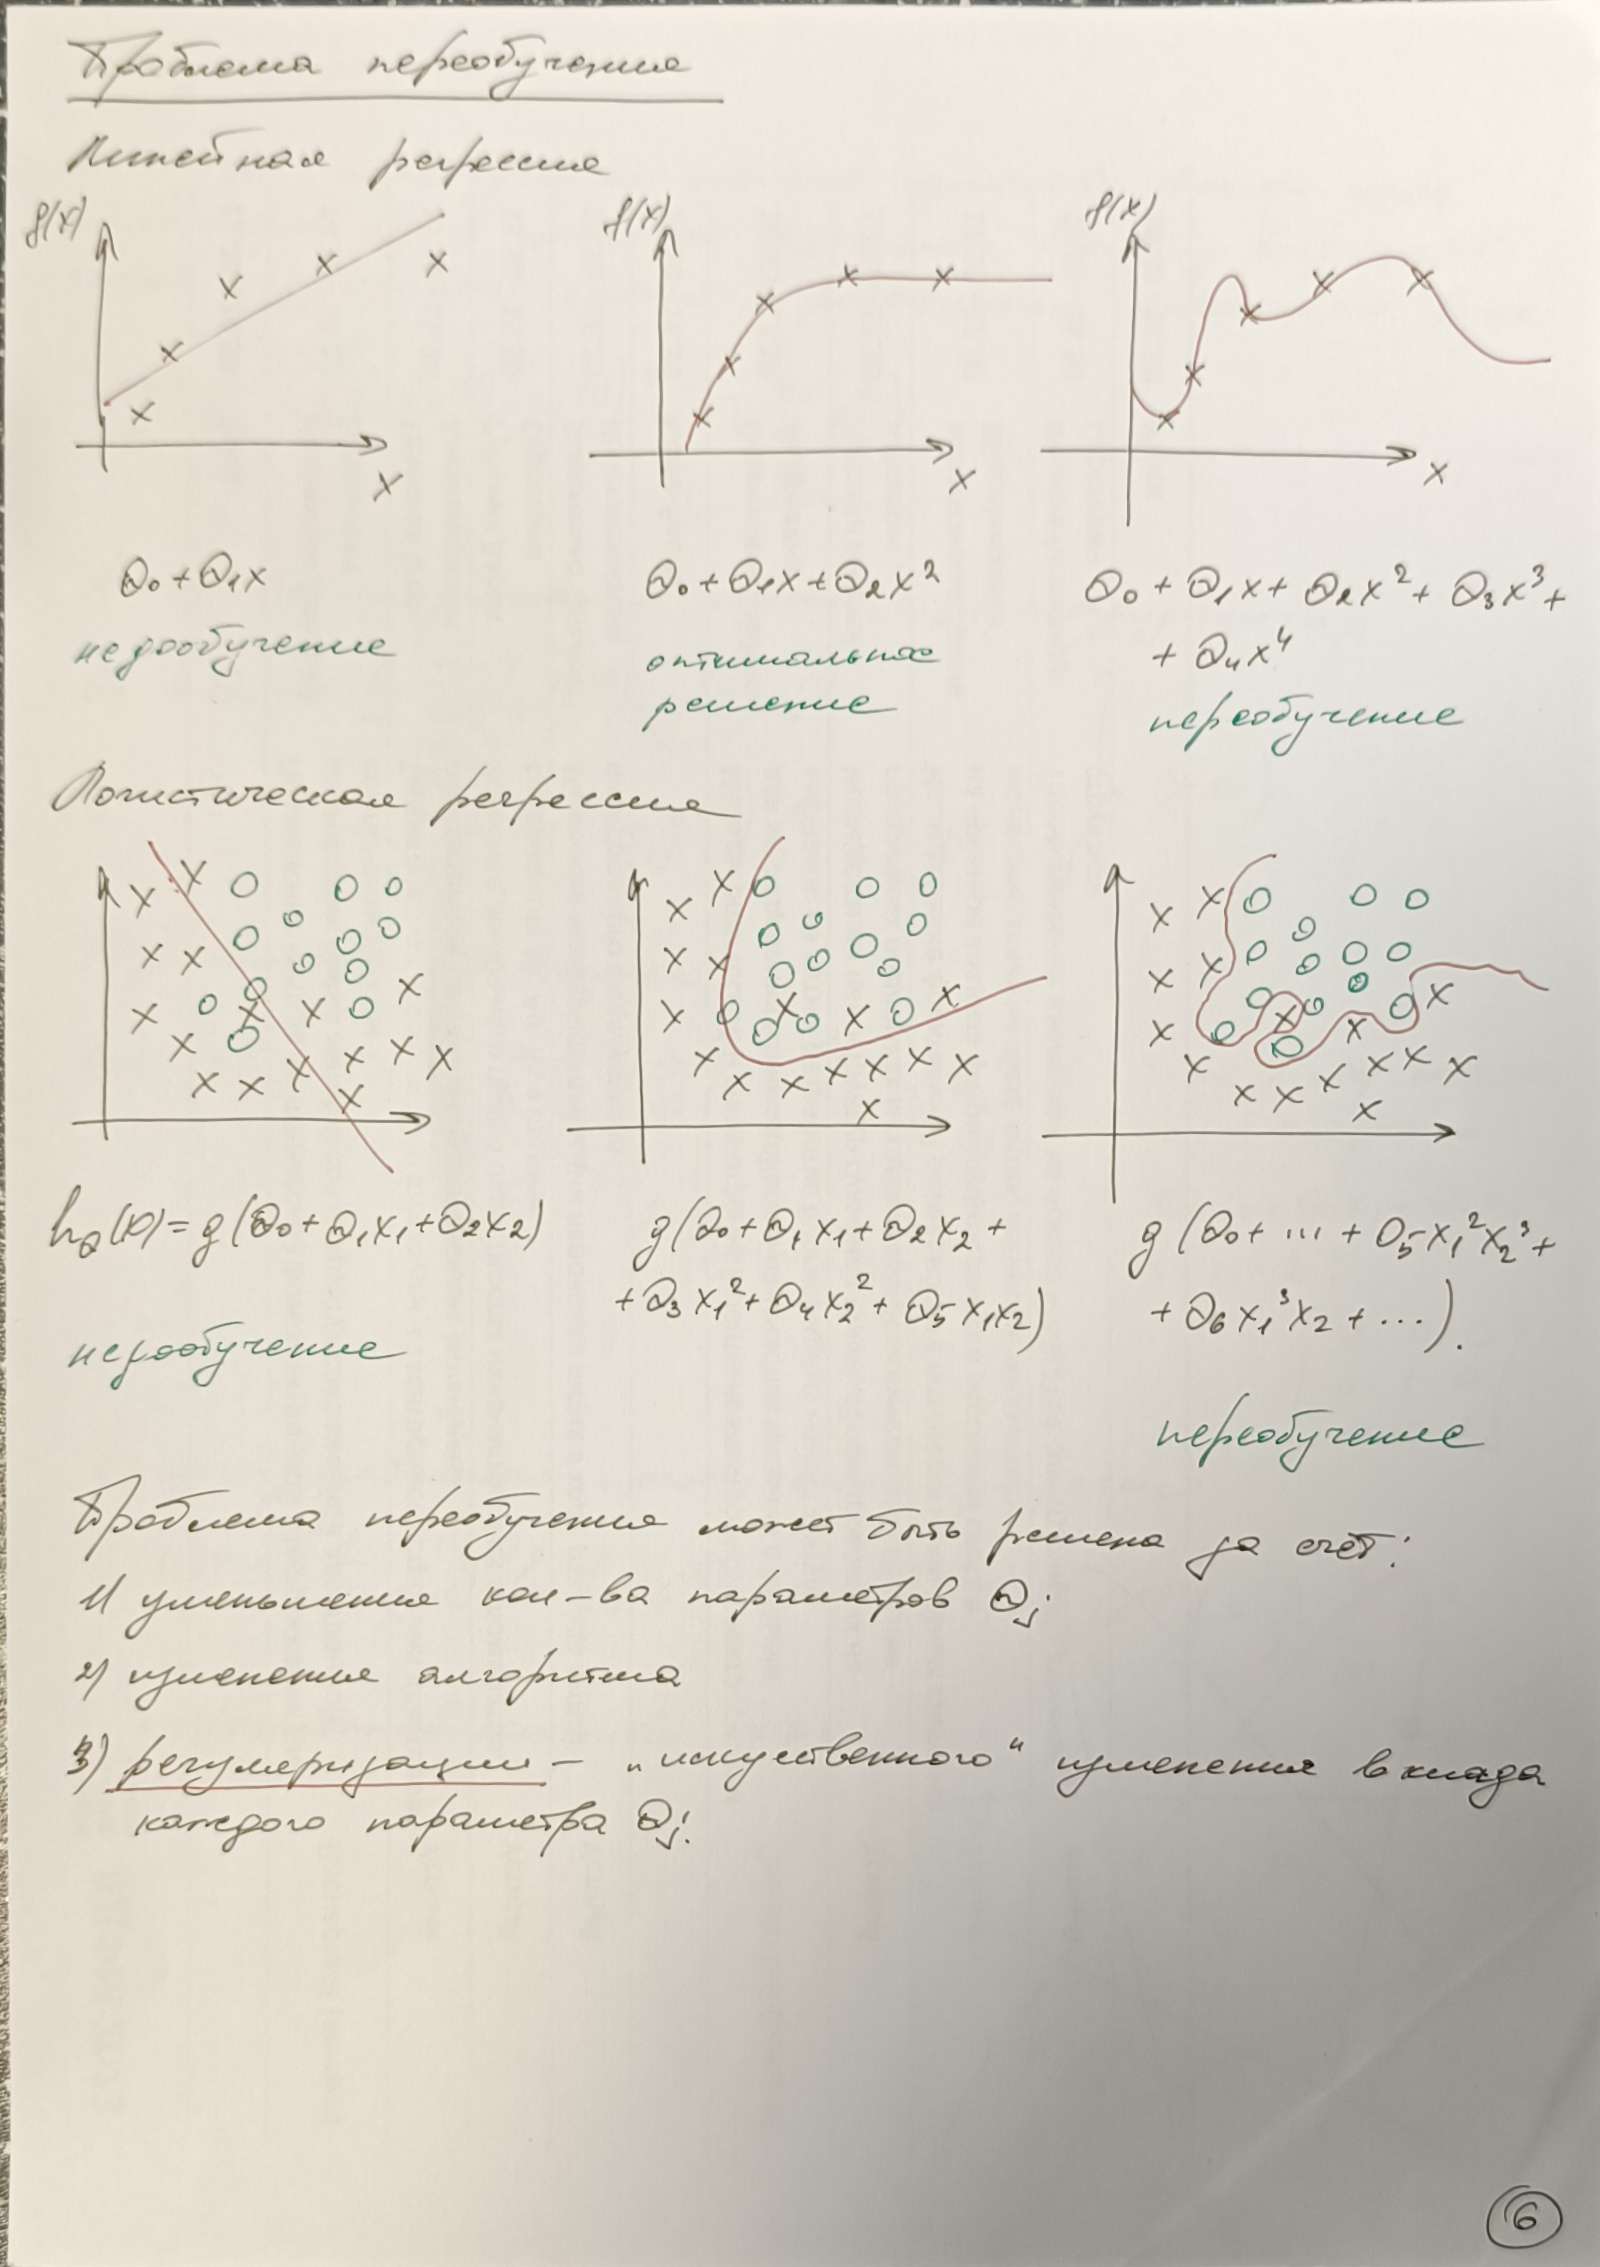 Проблема переобучения
Линейная регрессия
f(x) f(x) f(x)
x x x
Θ₀ + Θ₁x
недообучение
Θ₀ + Θ₁x + Θ₂x²
оптимальное
решение
Θ₀ + Θ₁x + Θ₂x² + Θ₃x³ +
+ Θ₄x⁴
переобучение
Логистическая регрессия
h_Θ(x) = g(Θ₀ + Θ₁x₁ + Θ₂x₂)
недообучение
g(Θ₀ + Θ₁x₁ + Θ₂x₂ +
+ Θ₃x₁² + Θ₄x₂² + Θ₅x₁x₂)
g(Θ₀ + ... + Θ₅x₁²x₂³ +
+ Θ₆x₁³x₂ + ...).
переобучение
Проблема переобучения может быть решена за счёт:
1) уменьшения кол-ва параметров Θⱼ
2) изменения алгоритма
3) регуляризации – „искуственного“ изменения вклада
каждого параметра Θⱼ.
6